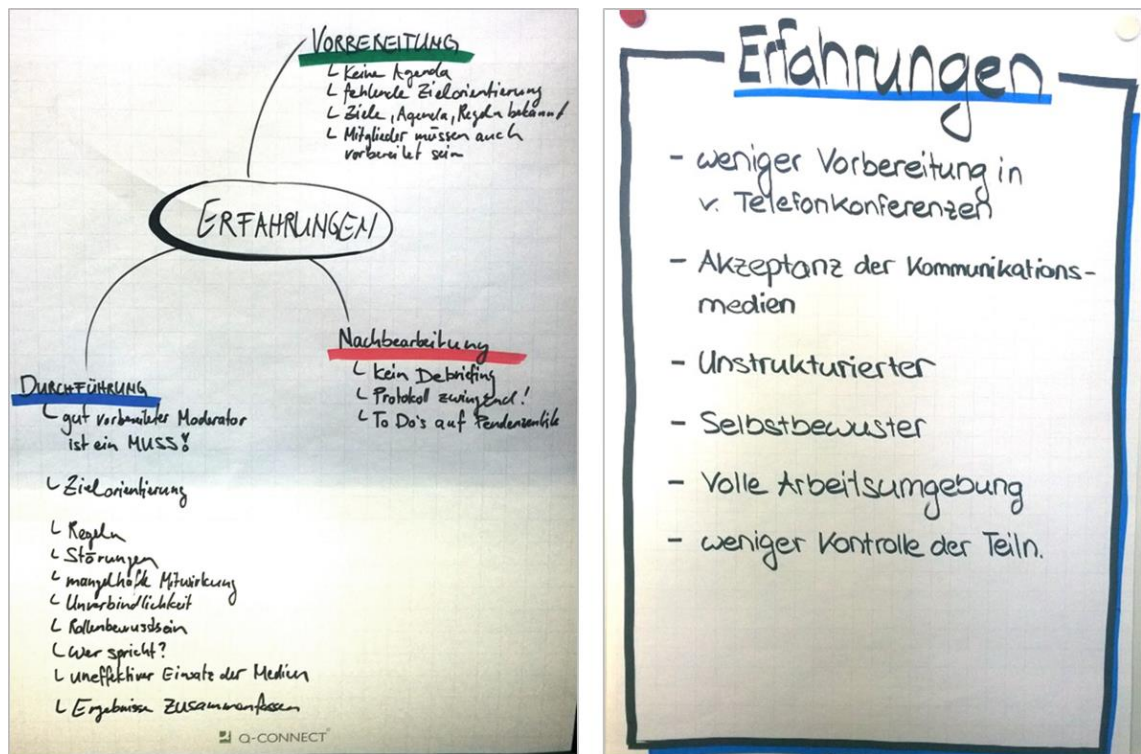 VORBEREITUNG
Keine Agenda
fehlende Zielorientierung
Ziele, Agenda, Regeln bekannt
Mitglieder müssen auch
vorbereitet sein
ERFAHRUNGEN
Nachbearbeitung
Kein Debriefing
Protokoll zwingend!
To Do's auf Pendenzenliste
DURCHFÜHRUNG
gut vorbereiteter Moderator
ist ein MUSS!
Zielorientierung
Regeln
Störungen
mangelhafte Mitwirkung
Unverbindlichkeit
Rollenbewusstsein
Wer spricht?
uneffektiver Einsatz der Medien
Ergebnisse zusammenfassen
Q-CONNECT
Erfahrungen
- weniger Vorbereitung in
v. Telefonkonferenzen
- Akzeptanz der Kommunikations-
medien
- Unstrukturierter
- Selbstbewuster
- Volle Arbeitsumgebung
- weniger Kontrolle der Teiln.